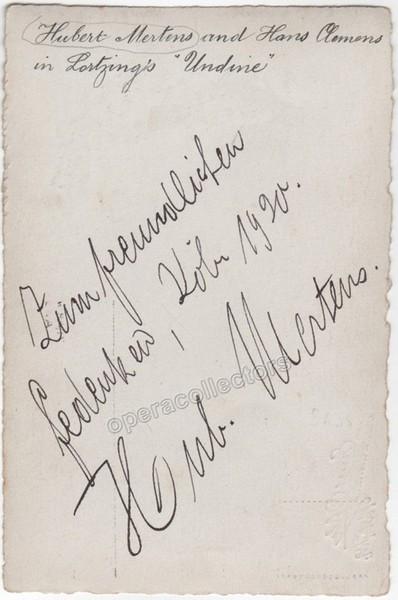 Hubert Mertens and Hans Clemens
in Lortzing's "Undine"
Zum freundlichen
Gedenken, Köln 1920.
Hub. Mertens.
operacollectors